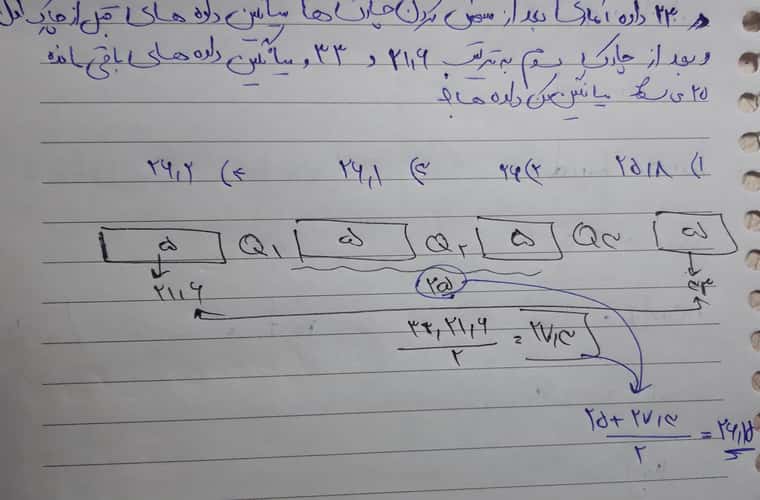 در ۲۳ داده آماری بعد از مشخص کردن چارک ها میانگین داده های قبل از چارک اول
و بعد از چارک سوم به ترتیب ۲۱,۶ و ۳۳ و میانگین داده های باقی مانده
۲۵ می باشد میانگین کل داده ها؟
۱) ۲۵,۸ ۲) ۲۶ ۳) ۲۶,۱ ۴) ۲۶,۲
۵ Q۱ ۵ Q۲ ۵ Q۳ ۵
۲۱,۶ ۲۵ ۳۳
۳۳,۲۱,۶ / ۲ = ۲۷,۳
۲۵ + ۲۷,۳ / ۲ = ۲۶,۱۵